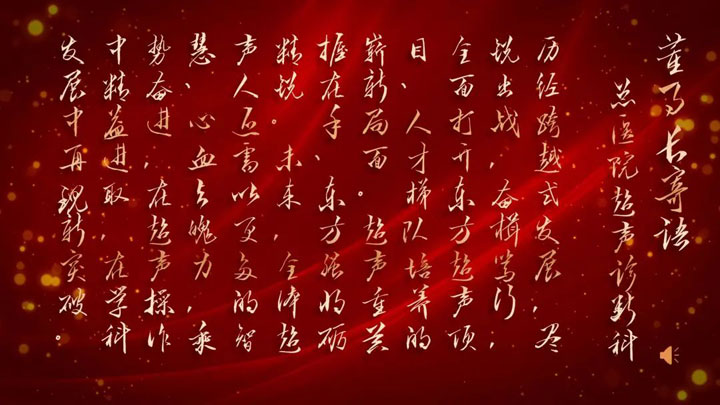 董事长寄语
总医院超声诊断科
历经跨越式发展，尽
锐出战，奋楫笃行，
全面打开东方超声项
目、人才梯队培养的
崭新局面。超声重器
握在手、东方强将砺
精锐。未来，全体超
声人还需以更多的智
慧、心血与魄力，乘
势奋进，在超声操作
中精益进取，在学科
发展中再现新突破。